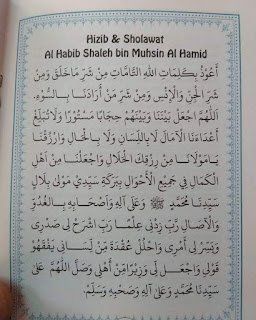 Hizib & Sholawat
Al Habib Shaleh bin Muhsin Al Hamid
أَعُوْذُ بِكَلِمَاتِ اللهِ التَّامَّاتِ مِنْ شَرِّ مَاخَلَقَ وَمِنْ
شَرِّ الْجِنِّ وَالْإِنْسِ وَمِنْ شَرِّ مَنْ أَرَادَنَا بِالسُّوْءِ.
اَللّٰهُمَّ اجْعَلْ بَيْنَنَا وَبَيْنَهُمْ حِجَابًا مَسْتُوْرًا وَلَاتُبَلِّغْ
أَعْدَاءَنَا الْآمَالَ لَابِاللِّسَانِ وَلَا بِالْحَالِ وَارْزُقْنَا
يَامَوْلَانَا مِنْ رِزْقِكَ الْحَلَالِ وَاجْعَلْنَا مِنْ أَهْلِ
الْكَمَالِ فِي جَمِيْعِ الْأَحْوَالِ بِبَرَكَةِ سَيِّدِيْ مَوْلَى بِلَالٍ
سَيِّدِنَا مُحَمَّدٍ ﷺ وَعَلَى آلِهِ وَأَصْحَابِهِ بِالْغُدُوِّ
وَالْآصَالِ رَبِّ زِدْنِي عِلْمًا رَبِّ اشْرَحْ لِي صَدْرِيْ
وَيَسِّرْ لِي أَمْرِيْ وَاحْلُلْ عُقْدَةً مِنْ لِسَانِي يَفْقَهُوْا
قَوْلِي وَاجْعَل لِي وَزِيْرًا مِنْ أَهْلِي وَصَلِّ اللّٰهُمَّ عَلَى
سَيِّدِنَا مُحَمَّدٍ وَعَلَى آلِهِ وَصَحْبِهِ وَسَلِّمْ.